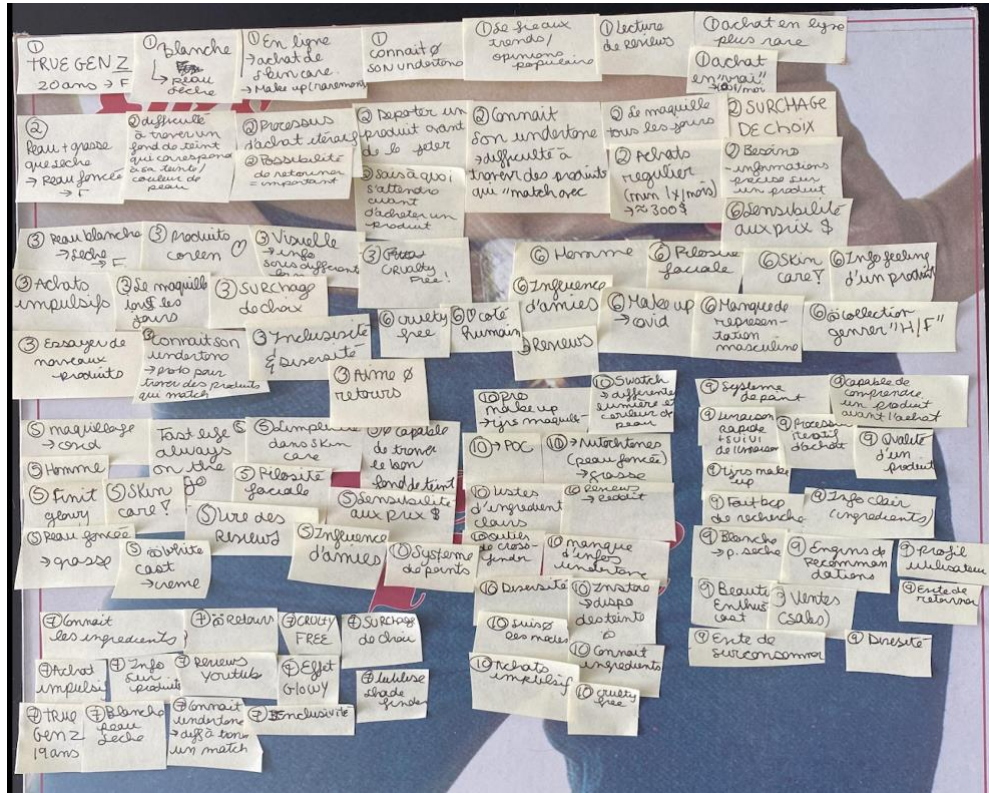 ①
TRUE GEN Z
20ans → F
① Blanche
↳ peau
sèche
① En ligne
→ achat de
skin care.
→ Make up (rarement)
①
connait Ø
son undertone
① Se fie aux
trends/
opinions
populaire
① Lecture
de reviews
① achat en ligne
plus rare
① achat
en "vrai"
②
Peau + grasse
que sèche
→ Peau foncée
→ F
② difficulté
à trover un
fond de teint
qui correspond
à sa teinte/
couleur de
peau
② Processus
d'achat itératif
② Possibilité
de retourner
= important
② Depoter un
produit avant
de le jeter
② Sais à quoi
s'attendre
avant
d'acheter un
produit
② Connait
son undertone
→ difficulté à
trover des produits
qui "match avec
② Se maquille
tous les jours
② Achats
regulier
(min 1x/mois)
→ ≈ 300$
② SURCHAGE
DE CHOIX
② Besoins
informations
précise sur
un produit
⑥ Sensibilité
aux prix $
③ Peau blanche
→ sèche
→ F
③ Produits
coréen ♡
③ Visuelle
→ info
sous different
③
CRUALTY
Free!
③ Achats
impulsifs
③ Se maquille
tous les
jours
③ SURCHAGE
de choix
③ Essayer de
nouveaux
produits
③ Connait son
undertone
→ proto pour
trover des produits
qui match
③ Inclusivité
& Diversité
③ Aime Ø
retours
⑥ Homme
⑥ Pilosité
faciale
⑥ Skin
care ♡
⑥ Info feeling
d'un produit
⑥ Influence
d'amies
⑥ Make up
→ covid
⑥ Manque de
représen-
tation
masculine
⑥ Ø collection
genrer "H/F"
⑥ cruelty
free
⑥ ♡ coté
humain
Reviews
⑤ maquillage
→ covid
Fast life
always
on the
go
⑤ Simplicité
dans skin
care
⑤ Ø capable
de trover
le bon
fond de teint
⑤ Homme
⑤ Pilosité
faciale
⑤ Finit
glowy
⑤ Skin
care ♡
⑤ Sensibilité
aux prix $
⑤ Lire des
Reviews
⑤ Influence
d'amies
⑤ Peau foncée
→ grasse
⑤ Ø White
cast
→ creme
Système
de points
⑩ Pro
make up
⑩ Swatch
→ différente
lumière et
couleur de
peau
⑩ → POC
⑩ → Autochtones
(peau foncée)
→ grasse
⑩ Listes
d'ingredient
clairs
⑩ Reviews
→ reddit
⑩ outils
de cross-
finder
⑩ manque
d'infos
undertone
⑩ Diversité
⑩ Instore
→ dispo
des teintes
⑩ suis Ø
les modes
⑩ Connait
ingredients
⑩ Achats
impulsif
⑩ cruelty
free
⑨ Système
de point
⑨ capable de
comprendre
un produit
avant l'achat
⑨ Livraison
rapide
+ suivi
de livraison
⑨ Processus
iteratif
d'achat
⑨ Qualité
d'un
produit
⑨ Tjrs make
up
⑨ Fait bcp
de recherche
⑨ Info clair
(ingredients)
⑨ Blanche
→ p. sèche
⑨ Engins de
Recomman
dations
⑨ profil
utilisateur
⑨ Beauty
Enthus
iast
Ventes
(sales)
⑨ Evite de
retourner
⑨ Evite de
surconsommer
⑨ Diversité
⑦ Connait
les ingredients
⑦ Ø Retours
⑦ CRUELTY
FREE
⑦ SURCHAGE
de choix
⑦ Achat
impulsif
⑦ Info
sur
produits
⑦ Reviews
Youtube
⑦ Effet
GLOWY
⑦ utilise
shade
finder
⑦ TRUE
Gen Z
19ans
⑦ Blanche
peau
sèche
⑦ Connait
undertone
→ diff à trover
un match
⑦ Inclusivité